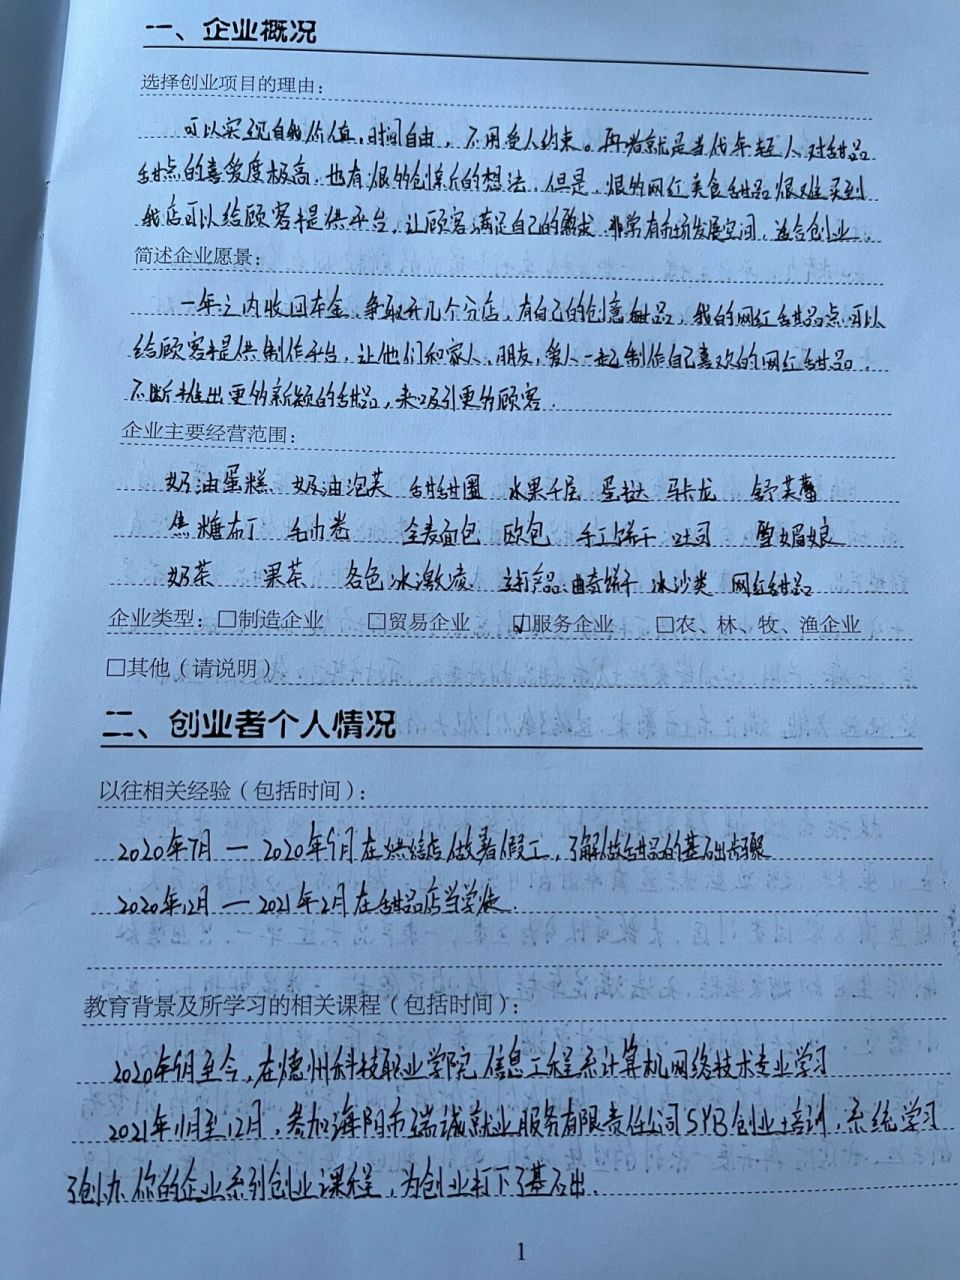 一、企业概况
选择创业项目的理由：
可以实现自我价值，时间自由，不用受人约束。再者就是当代年轻人对甜品
甜点的喜爱度极高，也有很多创新的想法，但是，很多网红美食甜品很难买到
我店可以给顾客提供平台，让顾客满足自己的需求，非常有市场发展空间，适合创业。
简述企业愿景：
一年之内收回本金，争取开几个分店，有自己的创意甜品，我的网红甜品点可以
给顾客提供制作平台，让他们和家人、朋友，爱人一起制作自己喜欢的网红甜品，
不断推出更多新颖的甜品，来吸引更多顾客．
企业主要经营范围：
奶油蛋糕、奶油泡芙 甜甜圈 水果千层 蛋挞 马卡龙 舒芙蕾
焦糖布丁 毛巾卷 全麦面包 欧包 手工饼干 吐司 雪媚娘
奶茶 果茶 各色冰激凌 主打产品：曲奇饼干 冰沙类 网红甜品
企业类型：□制造企业 □贸易企业 ☑服务企业 □农、林、牧、渔企业
□其他（请说明）
二、创业者个人情况
以往相关经验（包括时间）：
2020年7月 — 2020年9月在烘焙店做暑假工，了解做甜品的基础步骤
2020年12月 — 2021年2月在甜品店当学徒．
教育背景及所学习的相关课程（包括时间）：
2020年9月至今，在德州科技职业学院 信息工程系计算机网络技术专业学习
2021年11月至12月，参加海阳市瑞诚就业服务有限责任公司SYB创业培训，系统学习
了创办你的企业系列创业课程，为创业打下了基础．
1